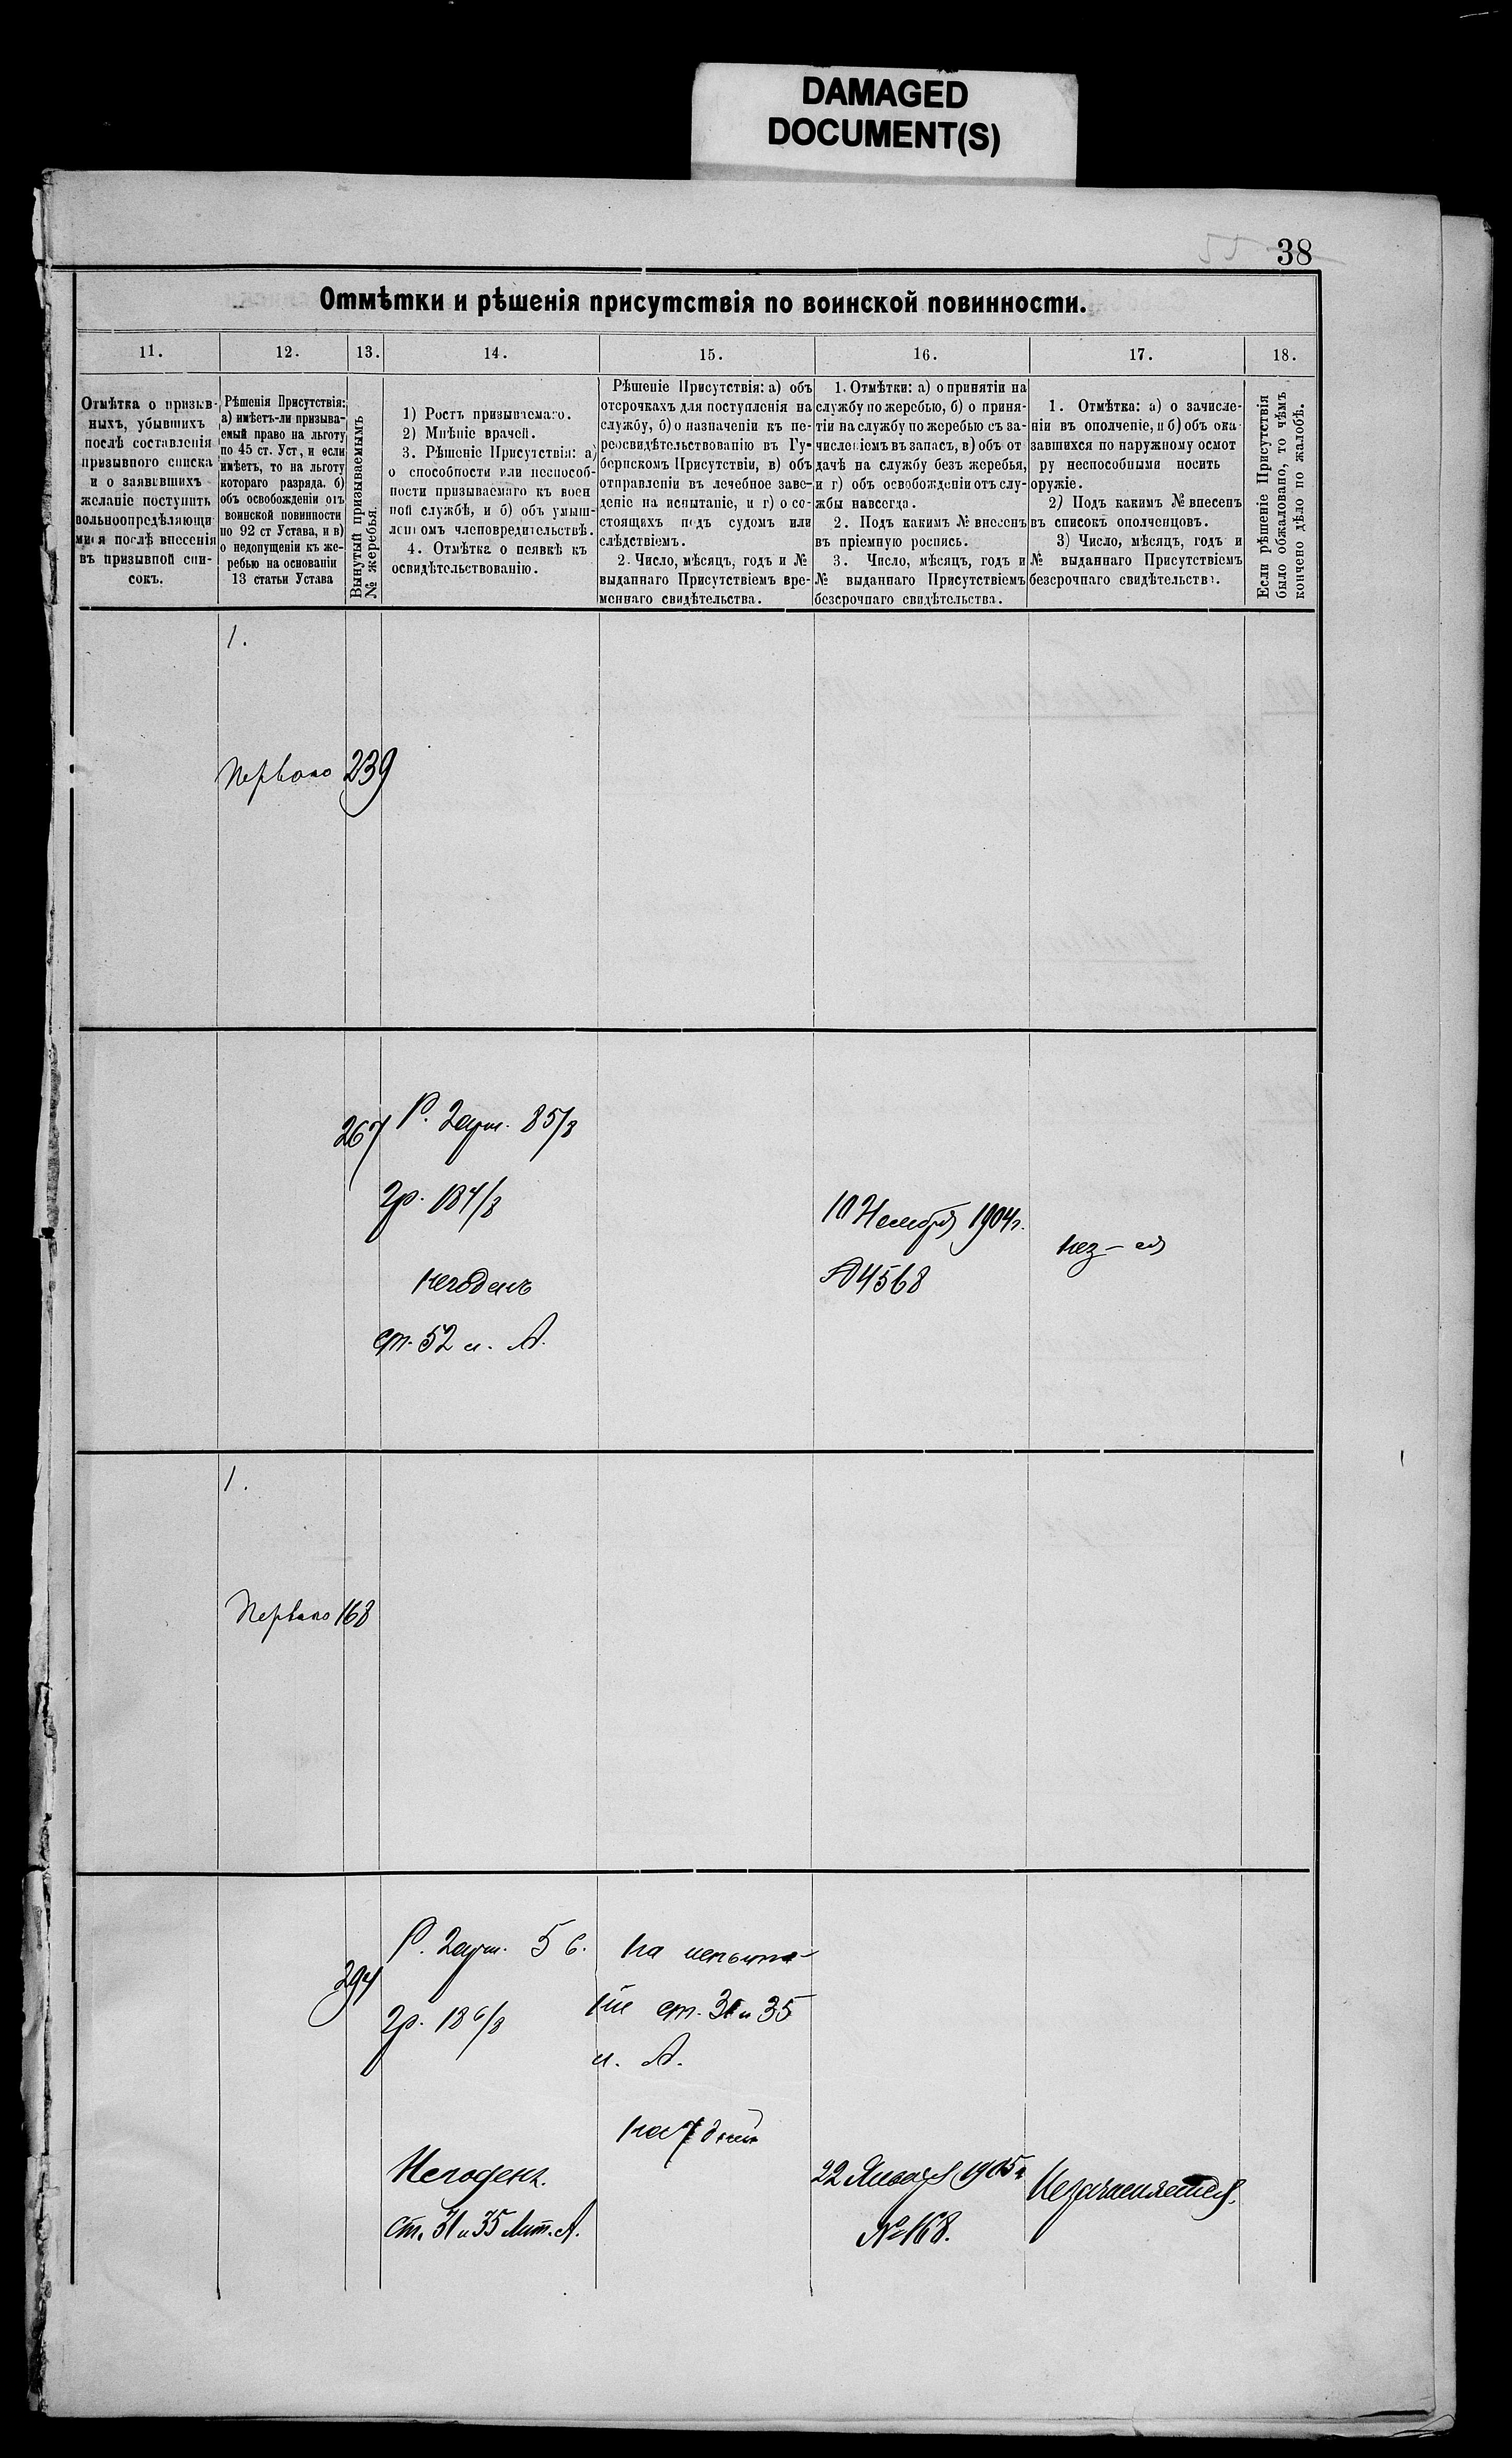 DAMAGED
DOCUMENT(S)
55 38
Отмѣтки и рѣшенія присутствія по воинской повинности.
11. 12. 13. 14. 15. 16. 17. 18.
Отмѣтка о призыв-
ныхъ, убывшихъ
послѣ составленія
призывного списка
и о заявившихъ
желаніе поступить
вольноопредѣляющи
мися послѣ внесенія
въ призывной спи-
сокъ.
Рѣшенія Присутствія:
а) имѣетъ-ли призыва-
емый право на льготу
по 45 ст. Уст, и если
имѣетъ, то на льготу
котораго разряда. б)
объ освобожденіи отъ
воинской повинности
по 92 ст Устава, и в)
о недопущеніи къ же-
ребью на основаніи
13 статьи Устава
Вынутый призываемымъ
№ жеребья.
1) Ростъ призываемаго.
2) Мнѣніе врачей.
3. Рѣшеніе Присутствія: а)
о способности или неспособ-
ности призываемаго къ воен
ной службѣ, и б) объ умыш-
ленномъ членовредительствѣ.
4. Отмѣтка о неявкѣ къ
освидѣтельствованію.
Рѣшеніе Присутствія: а) объ
отсрочкахъ для поступленія на
службу, б) о назначеніи къ пе-
реосвидѣтельствованію въ Гу-
бернскомъ Присутствіи, в) объ
отправленіи въ лечебное заве-
деніе на испытаніе, и г) о со-
стоящихъ подъ судомъ или
слѣдствіемъ.
2. Число, мѣсяцъ, годъ и №
выданнаго Присутствіемъ вре-
меннаго свидѣтельства.
1. Отмѣтки: а) о принятіи на
службу по жеребью, б) о приня-
тіи на службу по жеребью съ за-
численіемъ въ запасъ, в) объ от
дачѣ на службу безъ жеребья,
и г) объ освобожденіи отъ слу-
жбы навсегда.
2. Подъ какимъ № внесенъ
въ пріемную роспись.
3. Число, мѣсяцъ, годъ и
№ выданнаго Присутствіемъ
безсрочнаго свидѣтельства.
1. Отмѣтка: а) о зачисле-
ніи въ ополченіе, и б) объ ока
завшихся по наружному осмот
ру неспособными носить
оружіе.
2) Подъ какимъ № внесенъ
въ списокъ ополченцовъ.
3) Число, мѣсяцъ, годъ и
№ выданнаго Присутствіемъ
безсрочнаго свидѣтельства.
Если рѣшеніе Присутствія
было обжаловано, то чѣмъ
кончено дѣло по жалобѣ.
1.
Перваго 239
267 Р. 2 арш. 8 5/8
гр. 18 4/8
негоденъ
ст. 52 л. А.
10 Ноября 1904 г.
№ 4568
нез-ся
1.
Перваго 168
294 Р. 2 арш. 5 в.
гр. 18 6/8
Негоденъ.
ст. 31 и 35 Лит. А.
на испыта-
ніе ст. 31 и 35
л. А.
на 7 дней
22 Января 1905 г.
№ 168.
Незачисляется.